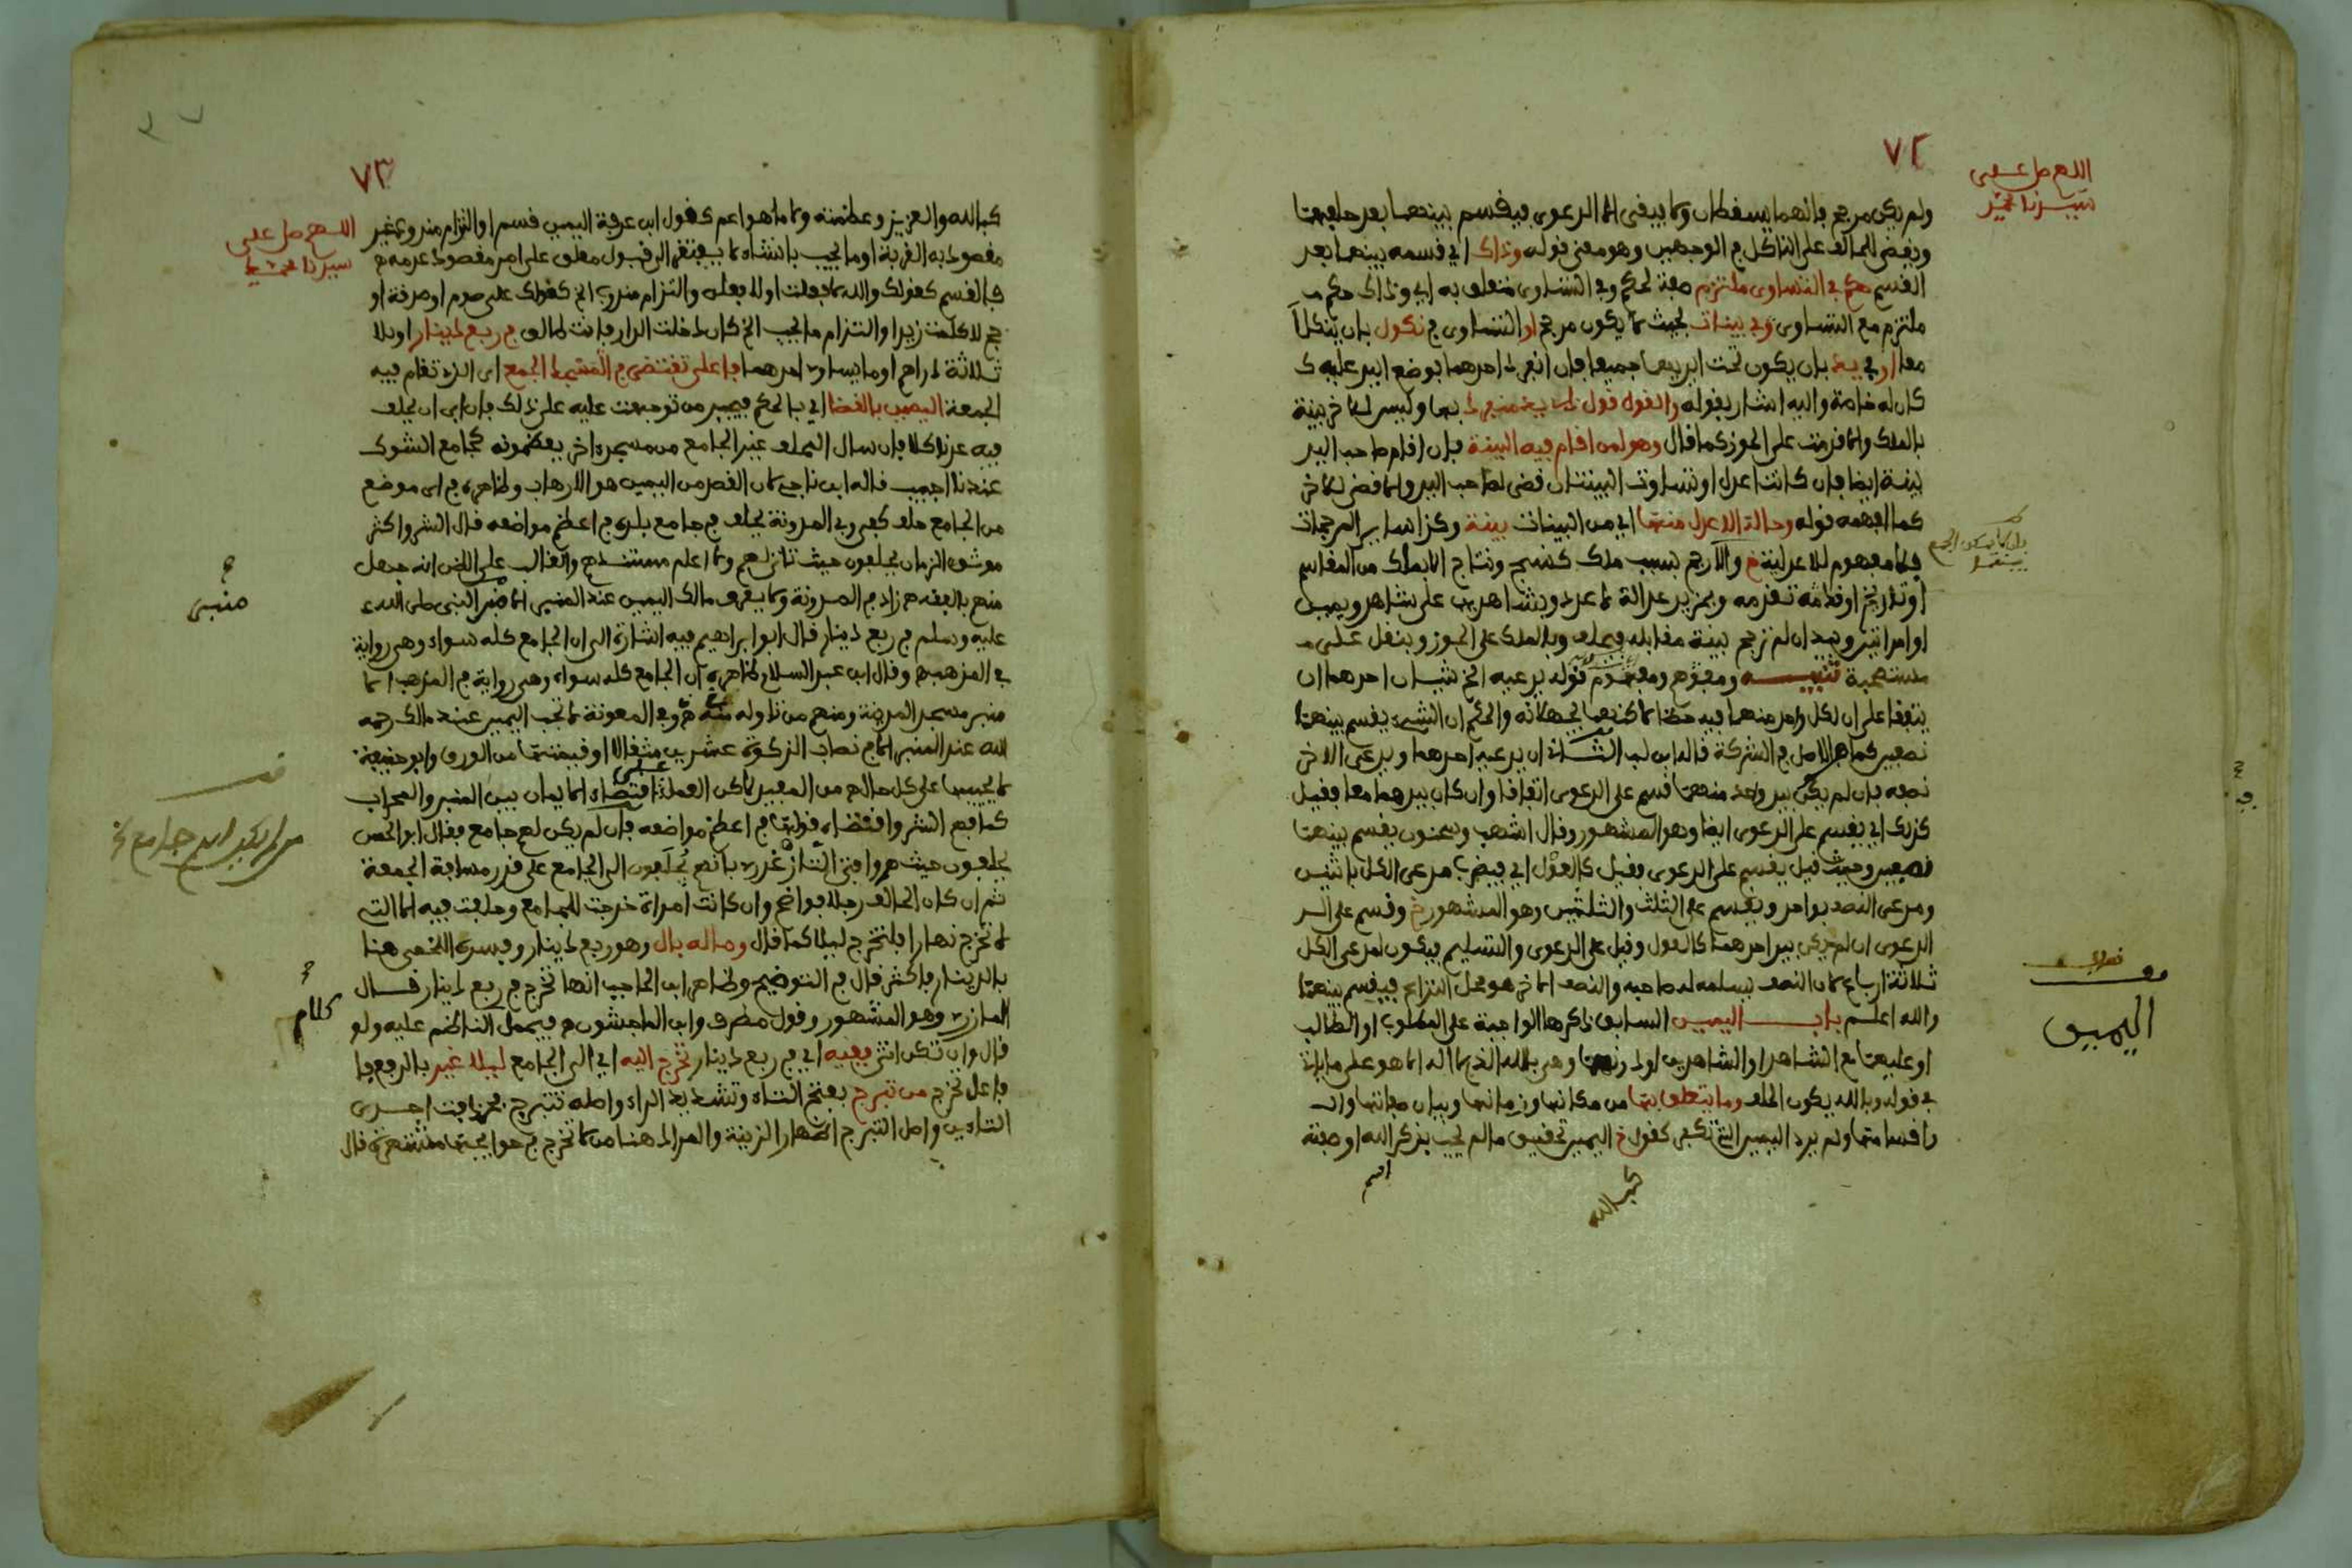 ٧٢
اللهم صل على
سيدنا محمد
ولم يكن مرجح فإنهما يسقطان ولا يبقى إلا الدعوى فيقسم بينهما بعد حلفهما
ويقضى للحالف على الناكل في الوجهين وهو معنى قوله وذاك اي قسمه بينهما بعد
القسم حكم في التساوي ملتزم صفة لحكم وفي التساوي متعلق به اي وذاك حكم
ملتزم مع التساوي في بينات بحيث لا يكون مرجح او التساوي في نكول بان ينكلا
معا او في يد بان يكون تحت ايديهما جميعا فان انفرد احدهما بوضع اليد عليه
كان له خاصة واليه اشار بقوله والقول قول ذي يد منفرد بها وليس للاخر بينة
بالملك والا قدمت على الحوز كما قال وهو لمن اقام فيه البينة فان اقام صاحب اليد
بينة ايضا فان كانت اعدل او تساوت البينتان قضى لصاحب اليد والا قضى للاخر
كما افهمه قوله وحالة الاعدل منها اي من البينات بينة وكذا سائر المرجحات
فلا مفهوم للاعدلية والارجح بسبب ملك كنسج ونتاج الا بملك من المقاسم
او تاريخ او قدمه وبمزيد عدالة لا عدد وبشاهدين على شاهد ويمين
او امراتين وبيد ان لم ترجح بينة مقابله فيحلف وبالملك على الحوز وبنقل على
مستصحبة تنبيه ومفهوم قوله يدعيه الخ شيان احدهما ان
يتفقا على ان لكل واحد منهما فيه حظا لاكنهما يجهلانه والحكم ان الشيء يقسم بينهما
نصفين كما هو الاصل في الشركة قاله ابن لب الثاني ان يدعيه احدهما ويدعي الاخر
نصفه فان لم يكن بيد واحد منهما قسم على الدعوى اتفاقا وان كان بيدهما معا فقيل
كذلك اي يقسم على الدعوى ايضا وهو المشهور وقال اشهب وسحنون يقسم بينهما
نصفين وحيث قيل يقسم على الدعوى فقيل كالعول اي فيضرب مدعي الكل باثنين
ومدعي النصف بواحد ويقسم على الثلث والثلثين وهو المشهور خ وقسم على
الدعوى ان لم يكن بيد احدهما كالعول وقيل على الدعوى والتسليم فيكون لمدعي الكل
ثلاثة ارباع لان النصف يسلمه له صاحبه والنصف الاخر هو محل النزاع فيقسم بينهما
والله اعلم باب اليمين السابق ذكرها الواجبة على المطلوب او الطالب
او عليهما مع الشاهد او الشاهدين اولا وهي بالله الذي لا اله الا هو على ما ياتي
في قوله وبالله يكون الحلف وما يتعلق بها من مكانها وزمانها وبيان صفاتها
واقسامها ولم يرد اليمين التي تكفر كقول خ اليمين تحقيق ما لم يجب بذكر الله او صفته
اسم
كبالله
اليمين
٧٣
اللهم صل على
سيدنا محمد
كبالله والعزيز وعظمته ولا ما هو اعم كقول ابن عرفة اليمين قسم او التزام مندوب غير
مقصود به القربة او ما يجب بانشاء لا يفتقر الى قبول معلق على امر مقصود عدمه
فالقسم كقولك والله لا فعلت او لا فعلن والتزام مندوب الخ كقولك علي صوم او صدقة او
حج لا كلمت زيدا او التزام ما يجب الخ كان دخلت الدار فانت طالق في ربع دينار او بلا
ثلاثة دراهم او ما يساوي احدهما فاعلى تقتضى في المسجد الجمع اي الذي تقام فيه
الجمعة اليمين بالقضا اي بالحكم فيجبر من توجهت عليه على ذلك فان ابى ان يحلف
فيه عد ناكلا فان سال الحلف غير الجامع من مسجد اخر يعظمونه كجامع الشوك
عندنا اجيب قاله ابن ناجي لان القصد من اليمين هو الارهاب وظاهره في اي موضع
من الجامع حلف كفى وفي المدونة يحلف في جامع بلده في اعظم مواضعه قال الشيوخ اكثر
موثقي الزمان يحلفون حيث تنازلهم ولا اعلم مستندهم والغالب على الظن انه جهل
منهم بالفقه زاد في المدونة ولا يعرف مالك اليمين عند المنبر الا منبر النبي صلى الله
عليه وسلم في ربع دينار قال ابو ابراهيم فيه اشارة الى ان الجامع كله سواء وهي رواية
في المذهب وقال ابن عبد السلام ظاهره ان الجامع كله سواء وهي رواية في المذهب الا
منبر مسجد المدينة ومنهم من تاوله وفي المعونة لا تجب اليمين عند مالك رحمه
الله عند المنبر الا في نصاب الزكوة عشرين مثقالا او قيمتها من الورق وابو حنيفة
لا يجيبها على كل حال من المعيد لاكن العمل على اقتضاء الايمان بين المنبر والمحراب
يحلفون حيث هم وافتى التازغدري بانهم يجلبون الى الجامع على قدر مسافة الجمعة
ثم ان كان الحالف رجلا فواضح وان كانت امراة خرجت للجامع وحلفت فيه الا التي
لا تخرج نهارا فلتخرج ليلا كما قال وما له بال وهو ربع دينار وفسره اللخمي هنا
بالدينار فاكثر قال في التوضيح وظاهر ابن الحاجب انها تخرج في ربع دينار قال
المازري وهو المشهور وقول مطرف وابن الماجشون فيحمل الناظم عليه ولو
قال وان تكن انثى ففيه اي في ربع دينار تخرج اليه اي الى الجامع ليلا غير بالرفع
فاعل تخرج من تبرج بفتح التاء وتشديد الراء واصله تتبرج فحذفت احدى
التاءين واصل التبرج اظهار الزينة والمراد هنا من لا تخرج في حوائجها منتشرة قال
منبر
كلام